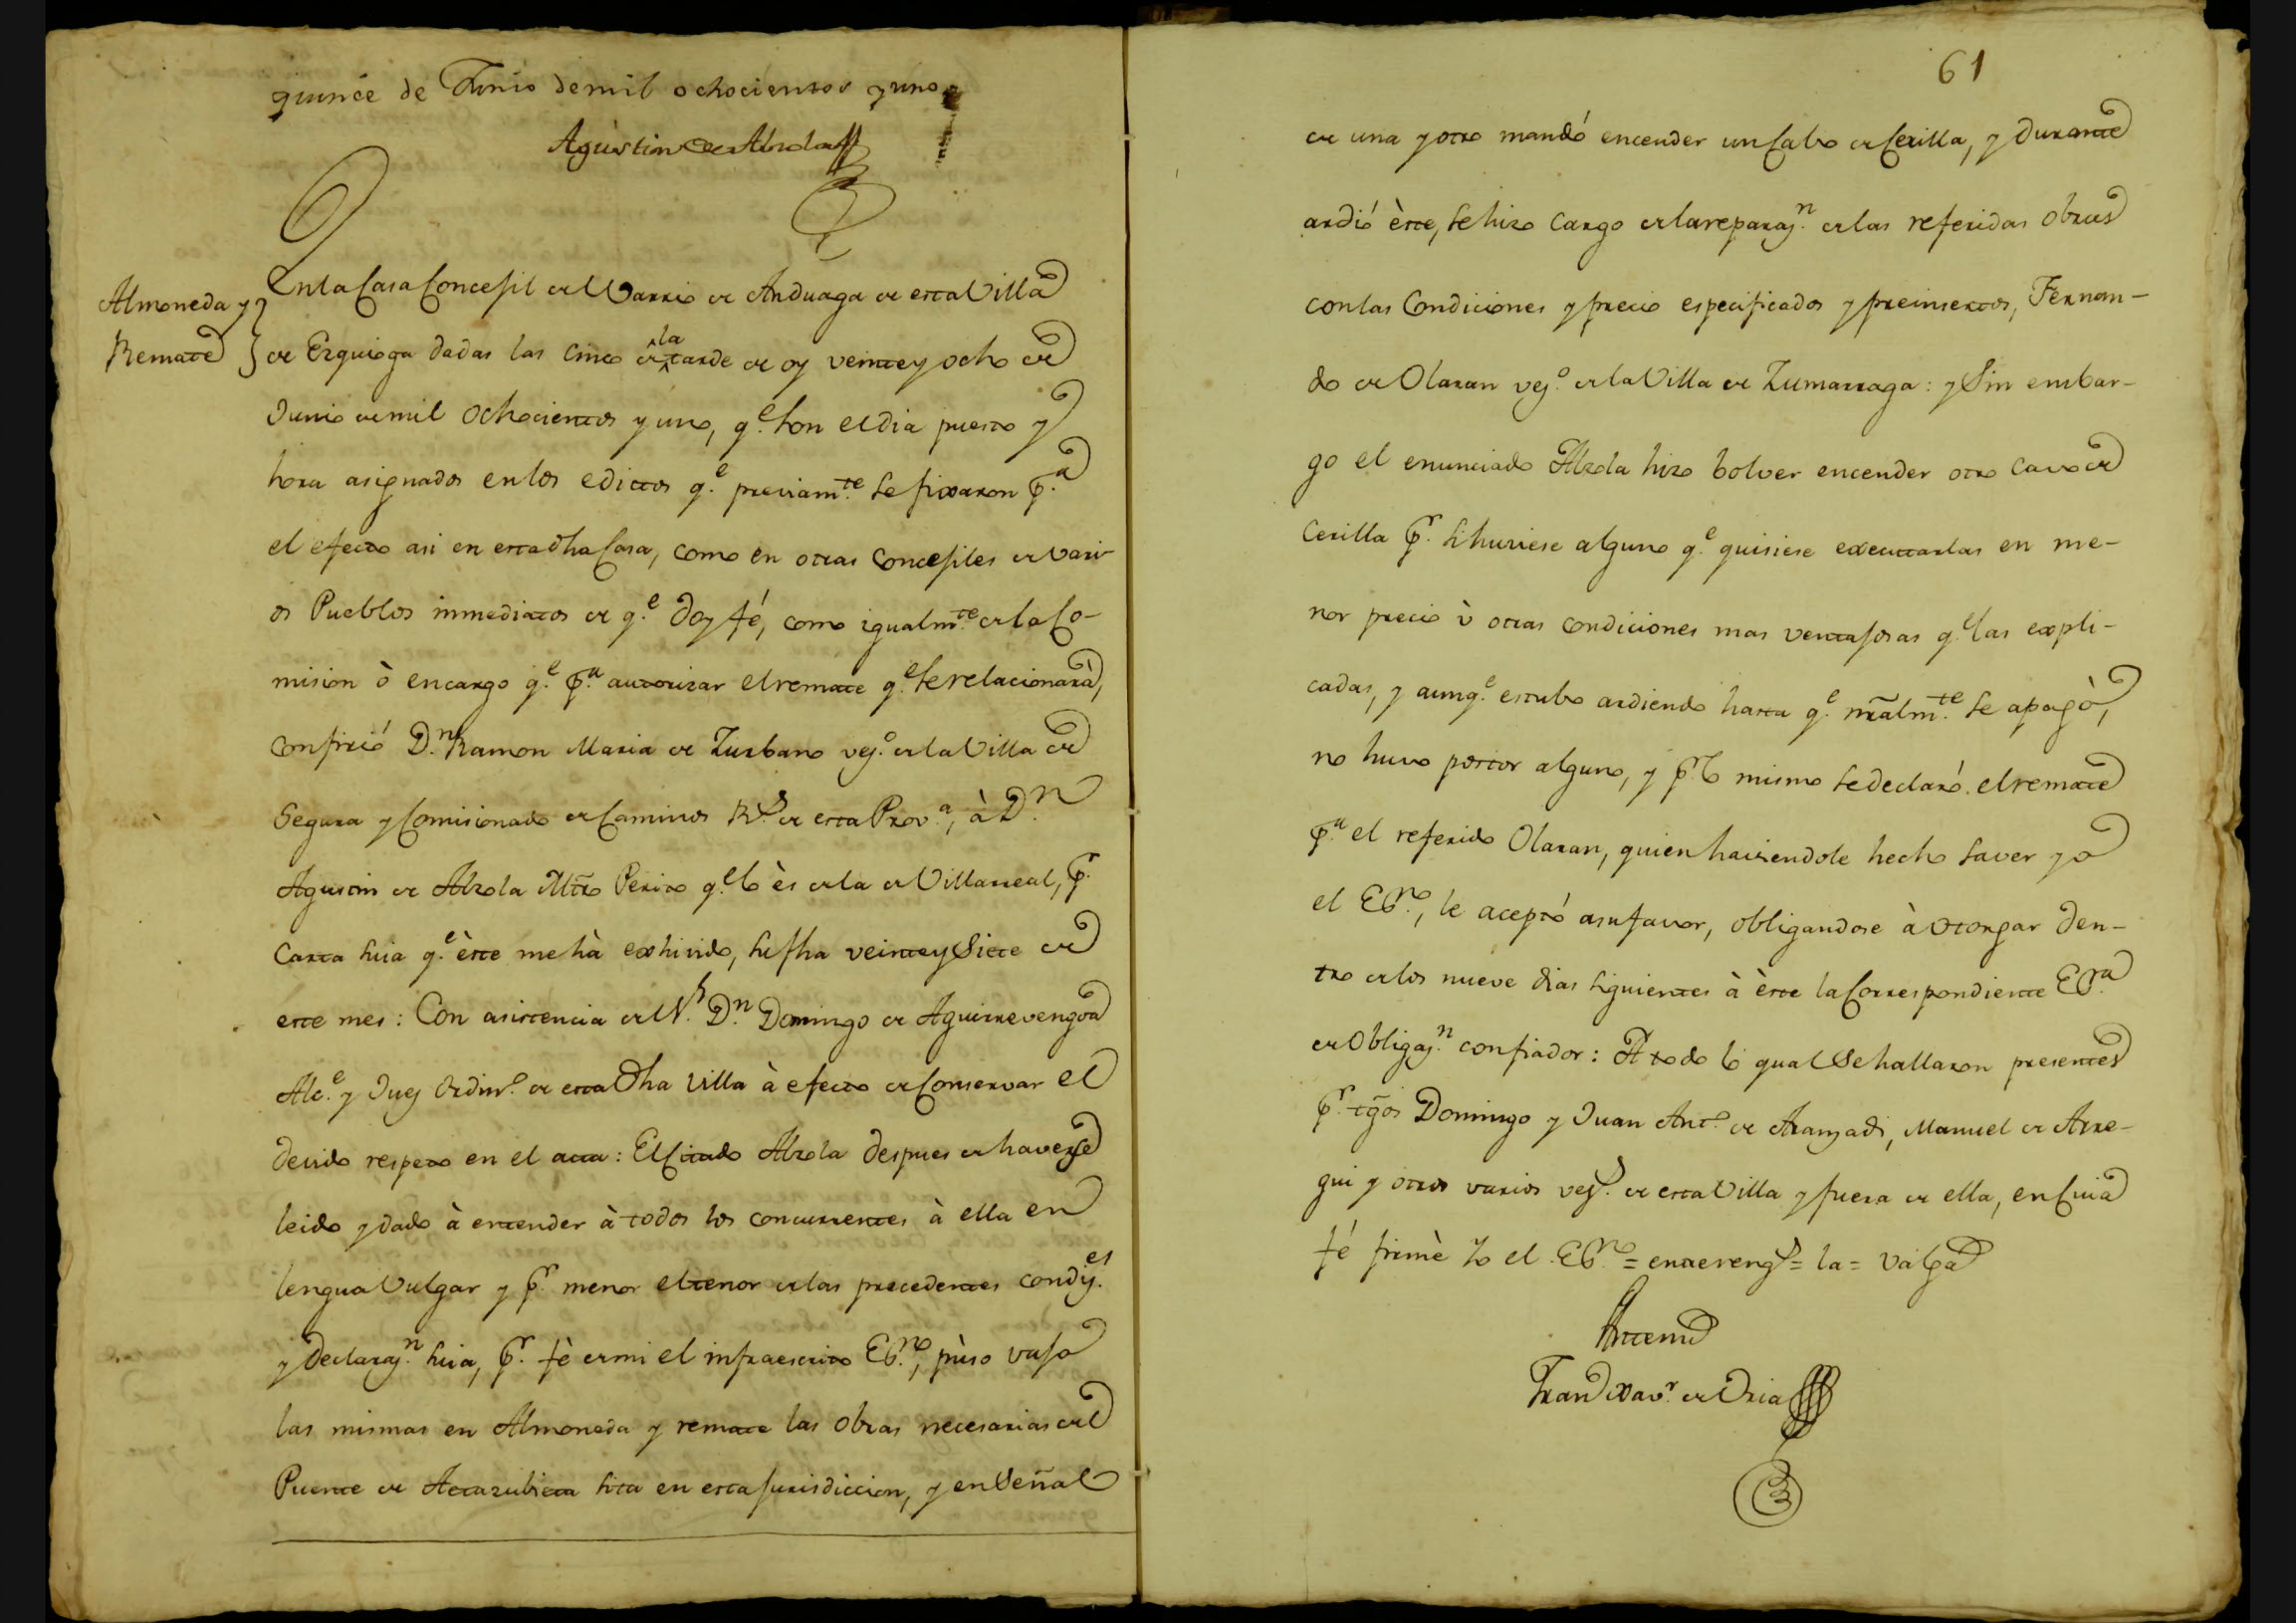 quince de Junio de mil ochocientos y uno
Agustin de Alzola
Almoneda y
Remate
En la Casa Concejil del Varrio de Anduaga de esta Villa
de Ezquioga dadas las cinco de la tarde de oy veinte y ocho de
Junio de mil ochocientos y uno, q.e son el dia puesto y
hora asignados en los edictos q.e previam.te se fixaron p.a
el efecto asi en esta dha Casa, como en otras Concejiles de vari-
os Pueblos inmediatos de q.e doy fé, como igualm.te de la Co-
mision ò encargo q.e p.a autorizar el remate q.e se relacionarà,
confirió D.n Ramon Maria de Zurbano vez.o de la Villa de
Segura y Comisionado de Caminos R.s de esta Prov.a, à D.n
Agustin de Alzola Mtro Perito q.e lo ès de la de Villarreal, p.r
Carta suia q.e èste me hà exhivido, su fha veinte y siete de
este mes: Con asistencia del S.r D.n Domingo de Aguirrevengoa
Alc.e y Juez Ordin.o de esta dha Villa à efecto de Conservar el
devido respeto en el acta: El Citado Alzola despues de haverse
leido y dado à entender à todos los concurrentes à ella en
lengua Vulgar y p.r menor el tenor de las precedentes condiz.es
y declaraz.n suia, p.r fè de mi el infraescrito Es.no, pùso vajo
las mismas en Almoneda y remate las obras necesarias del
Puente de Aztazubieta sita en esta jurisdiccion, y en Señal
61
de una y otro mandó encender un Cabo de Cerilla, y durante
ardió èste, se hizo cargo de la reparaz.n de las referidas obras
con las Condiciones y precio especificados y preinsertos, Fernan-
do de Olaran vez.o de la Villa de Zumarraga: y Sin embar-
go el enunciado Alzola hizo bolver encender otro cavo de
cerilla p.r si huviese alguno q.e quisiese executarlas en me-
nor precio ù otras condiciones mas ventajosas q.e las expli-
cadas, y aunq.e estubo ardiendo hasta q.e nralm.te se apagò,
no huvo postor alguno, y p.r lo mismo se declaró el remate
p.a el referido Olaran, quien haviendole hecho saver yo
el Es.no, le aceptó a su favor, obligandose à otorgar den-
tro de los nueve dias siguientes à èste la Correspondiente Es.ra
de Obligaz.n con fiador: A todo lo qual Se hallaron presentes
p.r tgos Domingo y Juan Ant.o de Aranzadi, Manuel de Arre-
gui y otros varios vez.s de esta Villa y fuera de ella, en Cuia
fé firmè Yo el Es.no = entre reng.s = la = Valga
Ante mi
Fran.co Xav.r de Oria